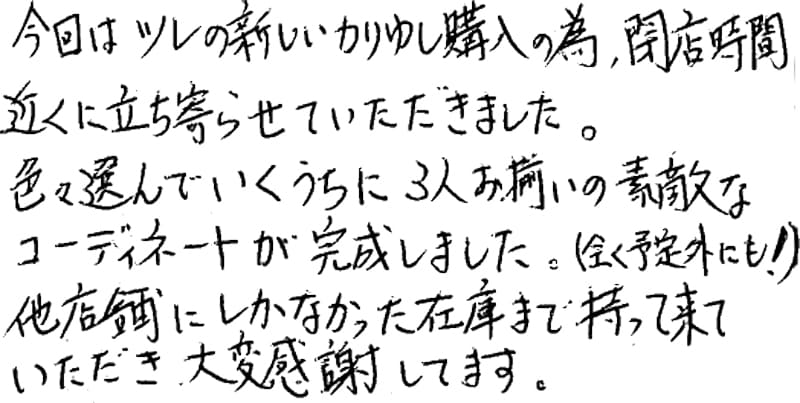 今回はツレの新しいかりゆし購入の為、閉店時間
近くに立ち寄らせていただきました。
色々選んでいくうちに3人お揃いの素敵な
コーディネートが完成しました。(全く予定外にも!)
他店舗にしかなかった在庫まで持って来て
いただき大変感謝してます。